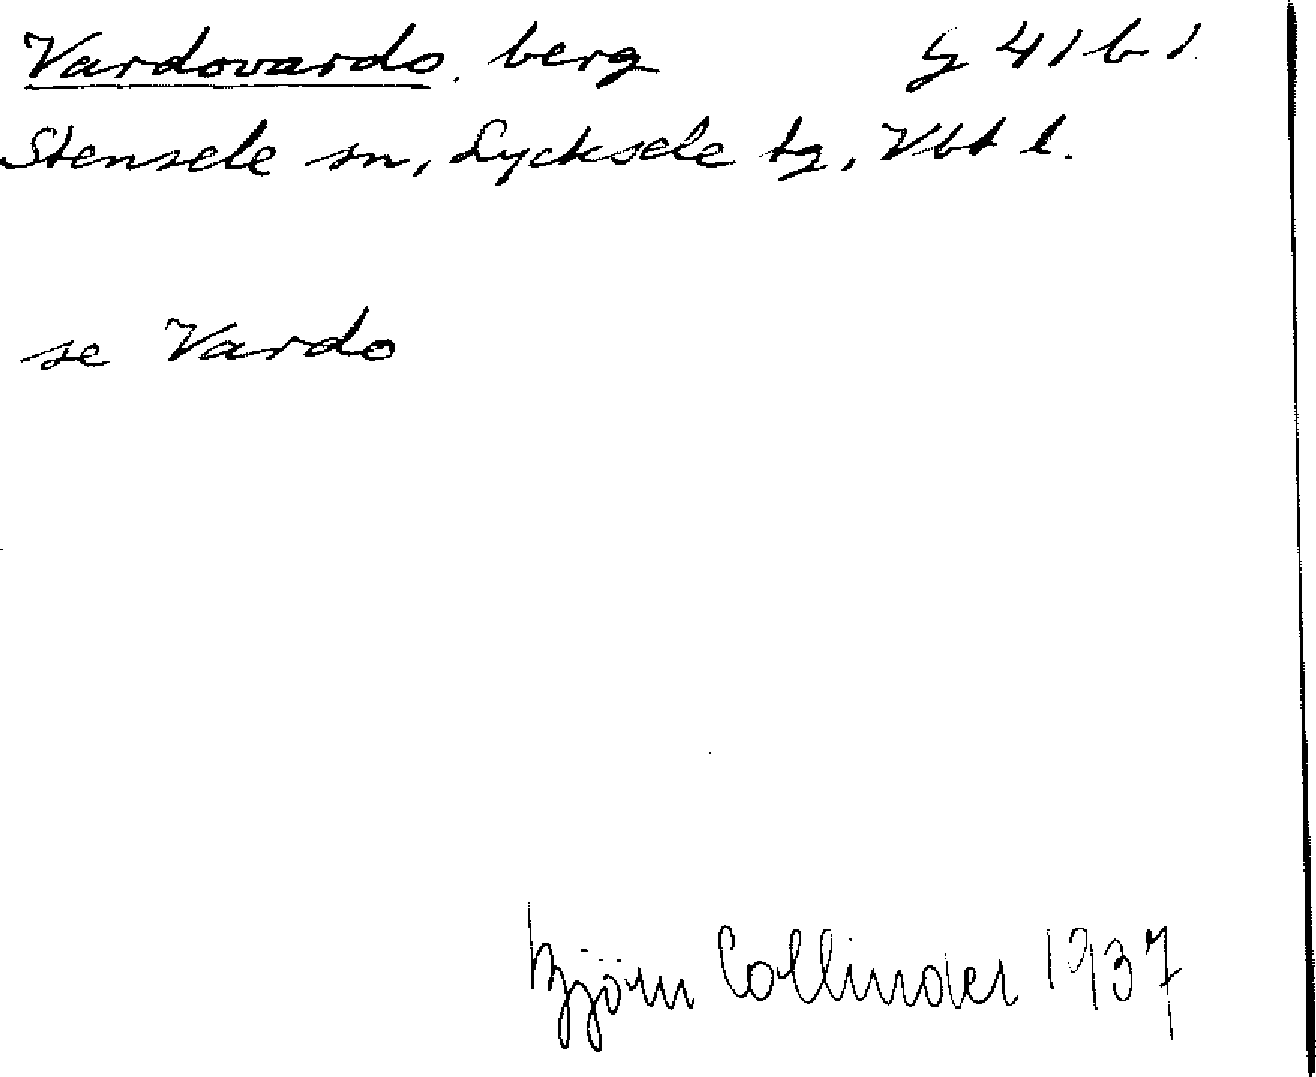 Vardovardo. berg g 41 b 1.
Stensele sn, Lycksele tg, Vbt l.
se Vardo
Björn Collinder 1937